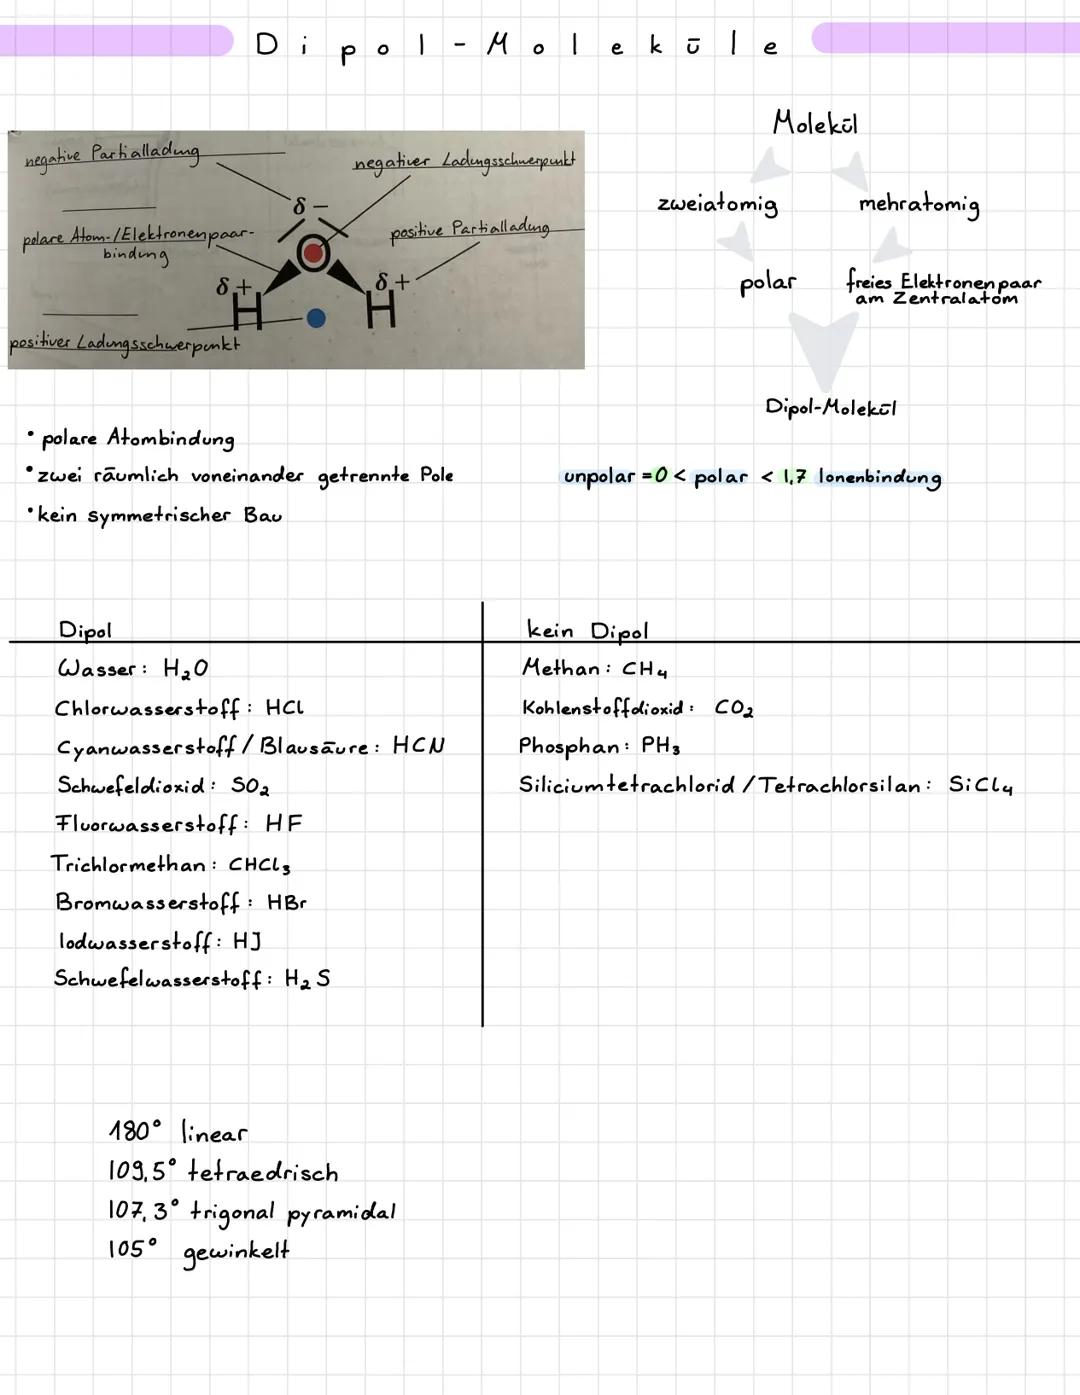 Dipol-Moleküle
negative Partialladung
negativer Ladungsschwerpunkt
δ-
polare Atom-/Elektronenpaar-
bindung
positive Partialladung
δ+ δ+
H H
positiver Ladungsschwerpunkt
Molekül
zweiatomig mehratomig
polar freies Elektronenpaar
am Zentralatom
Dipol-Molekül
• polare Atombindung
• zwei räumlich voneinander getrennte Pole
• kein symmetrischer Bau
unpolar = 0 < polar < 1,7 Ionenbindung
Dipol
Wasser: H₂O
Chlorwasserstoff: HCl
Cyanwasserstoff / Blausäure: HCN
Schwefeldioxid: SO₂
Fluorwasserstoff: HF
Trichlormethan: CHCl₃
Bromwasserstoff: HBr
Iodwasserstoff: HJ
Schwefelwasserstoff: H₂S
kein Dipol
Methan: CH₄
Kohlenstoffdioxid: CO₂
Phosphan: PH₃
Siliciumtetrachlorid / Tetrachlorsilan: SiCl₄
180° linear
109,5° tetraedrisch
107,3° trigonal pyramidal
105° gewinkelt